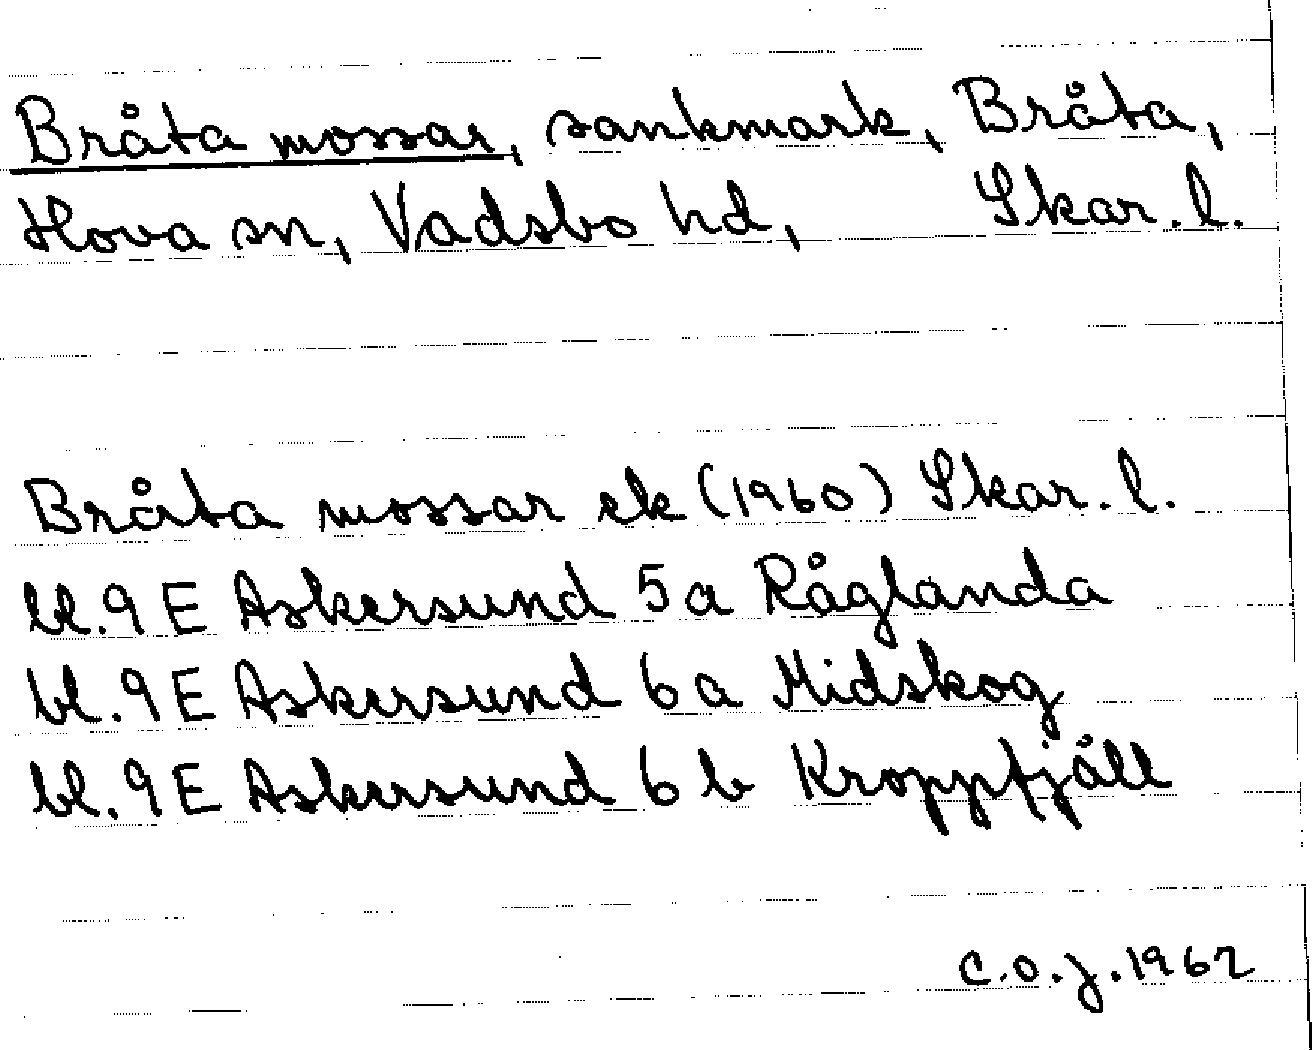 Bråta mossar, sankmark, Bråta,
Hova sn, Vadsbo hd, Skar. l.
Bråta mossar ek (1960) Skar. l.
bl. 9 E Askersund 5 a Råglanda
bl. 9 E Askersund 6 a Midskog
bl. 9 E Askersund 6 b Kroppfjäll
C.O.J. 1962